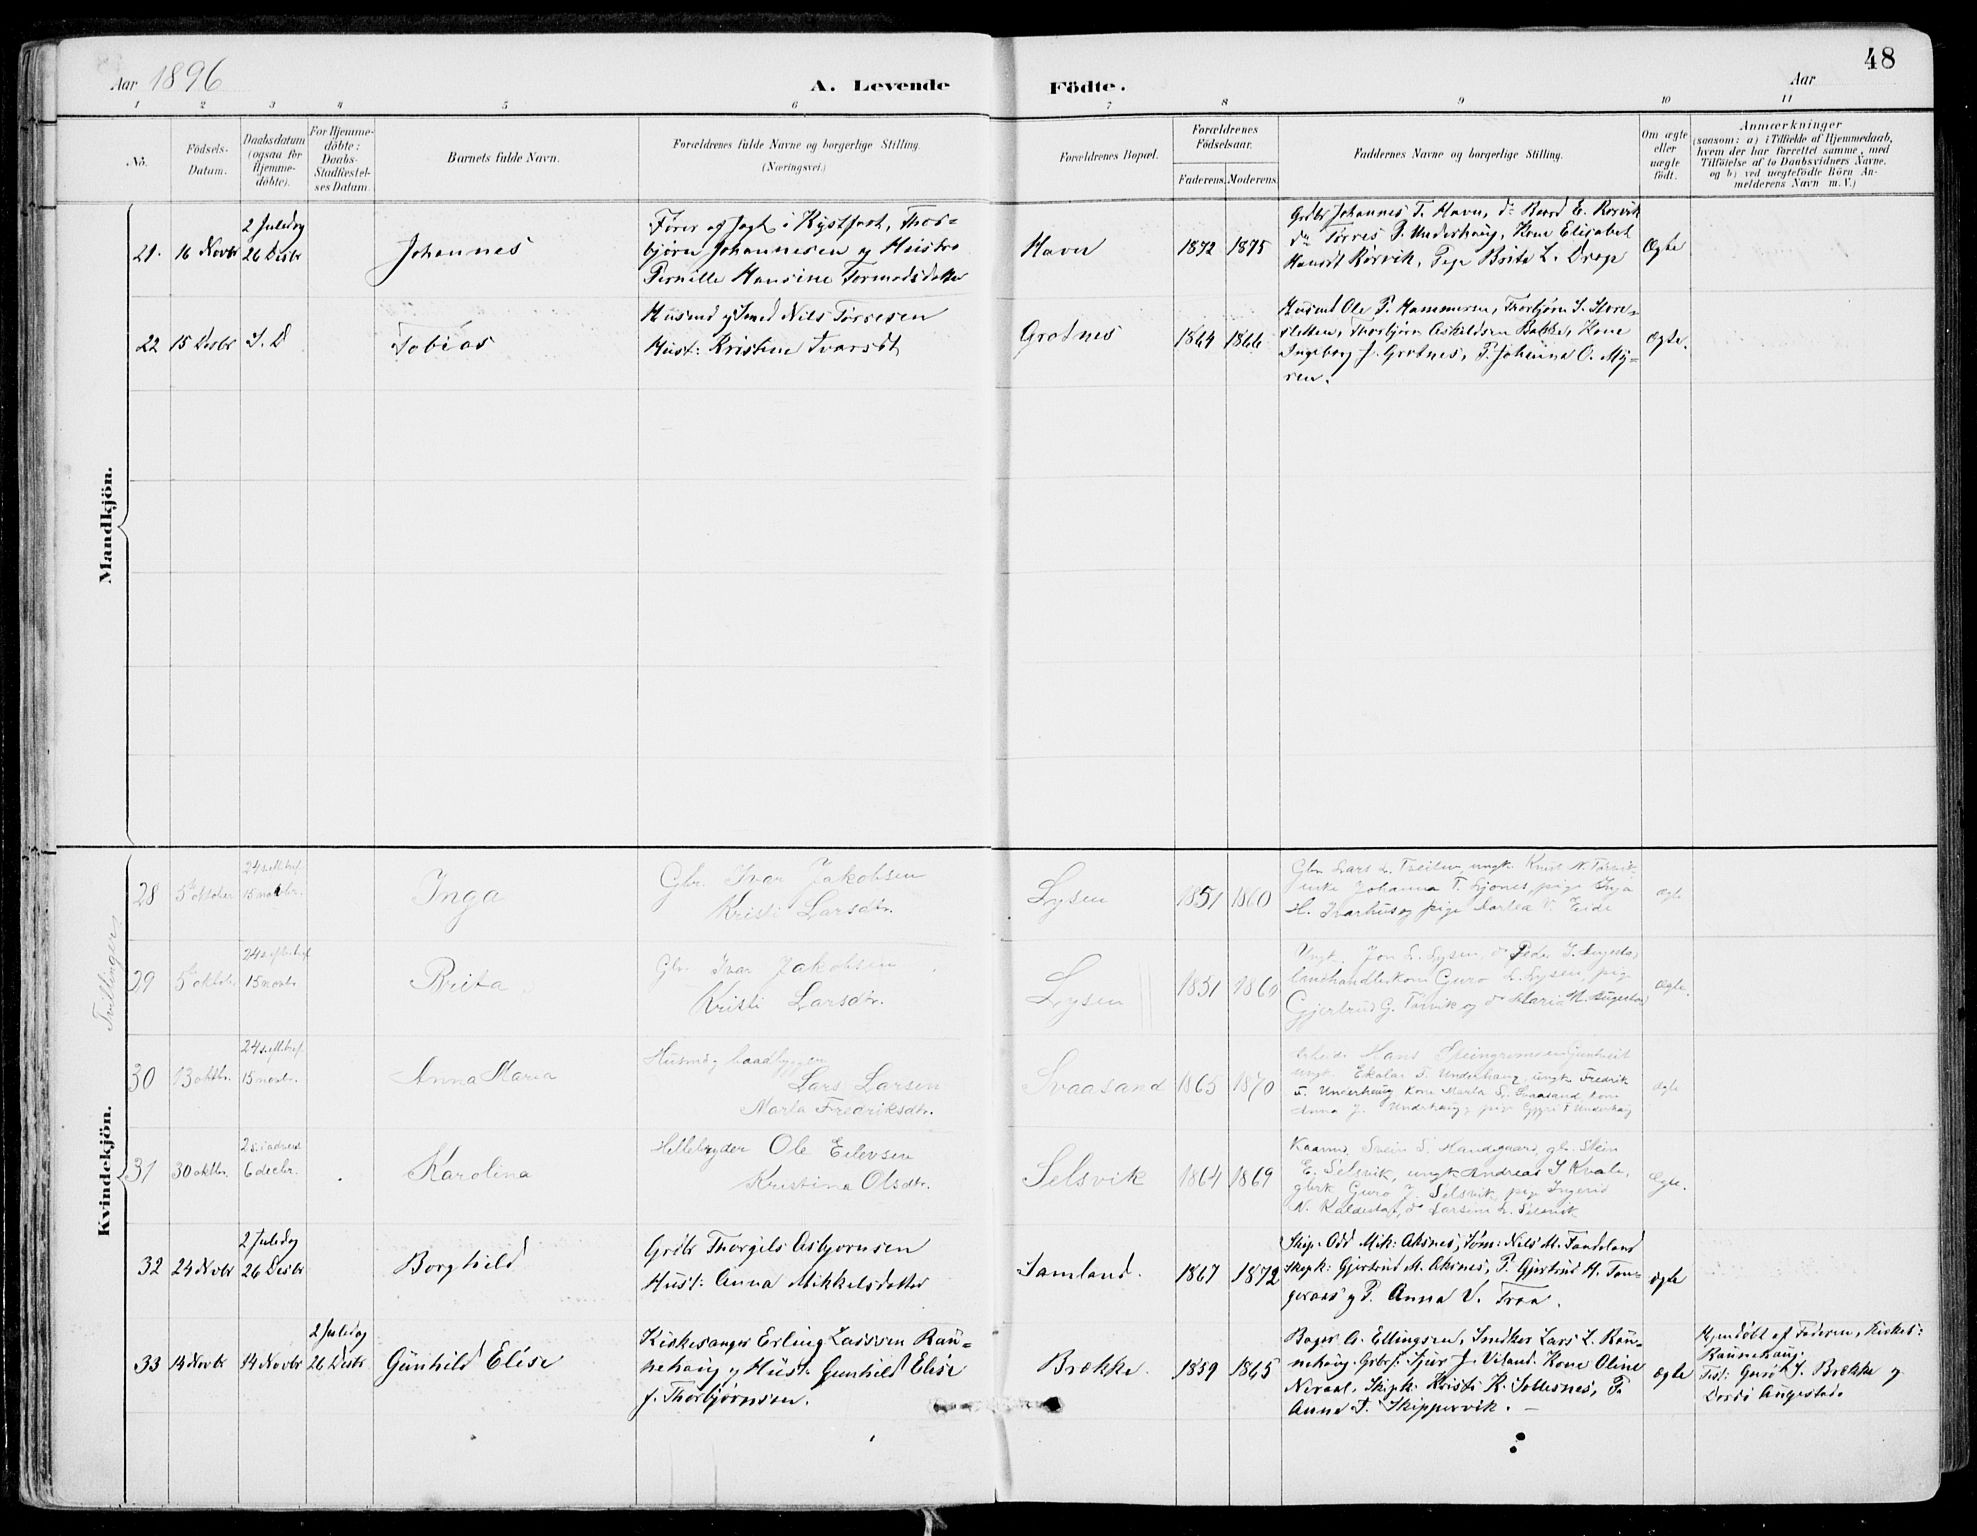 48
Aar 1896
A. Levende Födte.
Aar
1 2 3 4 5 6 7 8 9 10 11
No.
Födsels-
Datum.
Daabsdatum
(ogsaa for
Hjemme-
döbte).
For Hjemme-
döbte:
Daabs-
Stadfæstel-
ses Datum.
Barnets fulde Navn.
Forældrenes fulde Navne og borgerlige Stilling.
(Næringsvei.)
Forældrenes Bopæl.
Forældrenes
Födselsaar.
Faderens. Moderens.
Faddernes Navne og borgerlige Stilling.
Om ægte
eller
uægte
födt.
Anmærkninger
(saasom: a) i Tilfælde af Hjemmedaab,
hvem der har forrettet samme, med
Tilföielse af to Daabsvidners Navne.
og b) ved uægtefödte Börn An-
melderens Navn m. V.)
Mandkjön.
21.
16 Novbr
2 Juledag
26 Desbr
Johannes
Fører af Jagt i Kystfart, Thor-
bjørn Johannesen og Hustro
Pernille Hansine Tormodsdatter
Havn
1872
1875
Grdbr Johannes T. Havn, do Baard E. Rørvik
do Tørres P. Underhaug, Kone Elisabet
Hansdt Rørvik, Pige Brita L. Drage
Ægte
22
15 Desbr
S. D
Tobias
Husmd og Smed Nils Tørresen
Hust: Kristine Ivarsdt
Grotnes
1864
1866
Husmd Ole P. Hammeren, Thorbjørn S. Store-
sletten, Thorbjørn Askildsen Bakke, Kone
Ingeborg J. Grotnes, P. Johanna O. My-
ren.
Ægte.
Kvindekjön.
Tvillinger
28
5te oktober
15 novbr.
Inga
Gbr. Ivar Jakobsen
Kristi Larsdtr.
Lysen
1851
1860
Johanna T. Ljones, pige Inga
H. Ivarhus og pige V. Eide
ægte
29
5te oktbr.
15 novbr.
Brita
Gbr. Ivar Jakobsen
Kristi Larsdtr.
Lysen
1851
1860
Ungk. Jon L. Lysen, do Peder
Guro L. Lysen, pig
Gjertrud G. Tørvik og do Maria M.
Ægte.
30
13 oktbr.
15 novbr.
Anna Maria
Husm. og baadbygger
Lars Larsen
Marta Fredriksdtr.
Svaasand
1865
1870
Hans Steingrimsen
ungk. T. Underhaug, ungk. Fredrik
T. Underhaug kone Marta S. Svaasand, kone
Anna J. Underhaug, pige T Underhaug
ægte
31
30 oktbr.
2 s. i advent
6 decbr.
Karolina
Ole Eilevsen
Kristina Olsdtr.
Selsvik
1864
1869
Svein S. Handegaard, gbr. Stein
E. Selsvik, ungk. Andreas S Kvale,
gbrk Guro J. Selsvik, pige Ingerid
N. Kaldestad, do L. Selsvik
Ægte.
32
24 Novbr
2 Juledag
26 Desbr
Borghild
Grdbr Thorgils Asbjørnsen
Hust: Anna Mikkelsdatter
Samland.
1867
1872
Skip. Odd Mik: Aksnes, Tøm: Nils M. Sandsland
Skipk: Gjertrud M. Aksnes, P. Gjertrud H. Tan-
geraas og P. Anna V. Traa.
ægte
33
14 Novbr
14 Novbr
2 Juledag
26 Desbr
Gunhild Elise
Kirkesanger Erling Larssen Rau-
nehaug og Hust: Gunhild Elise
f. Thorbjørnsen.
Brække.
1859
1865
Bager A. Ellingsen, Snedker Lars L. Rau-
nehaug. Grbrs: Sjur J. Viland. Kone Oline
Neraal, Skipk: Kristi K. Sollesnes, P.
Anna T. Skippervik. —
ægte
Hjemdøbt af Faderen, Kirkes:
Raunehaug.
Test: Guro J. Brække og
Dordi Augestad